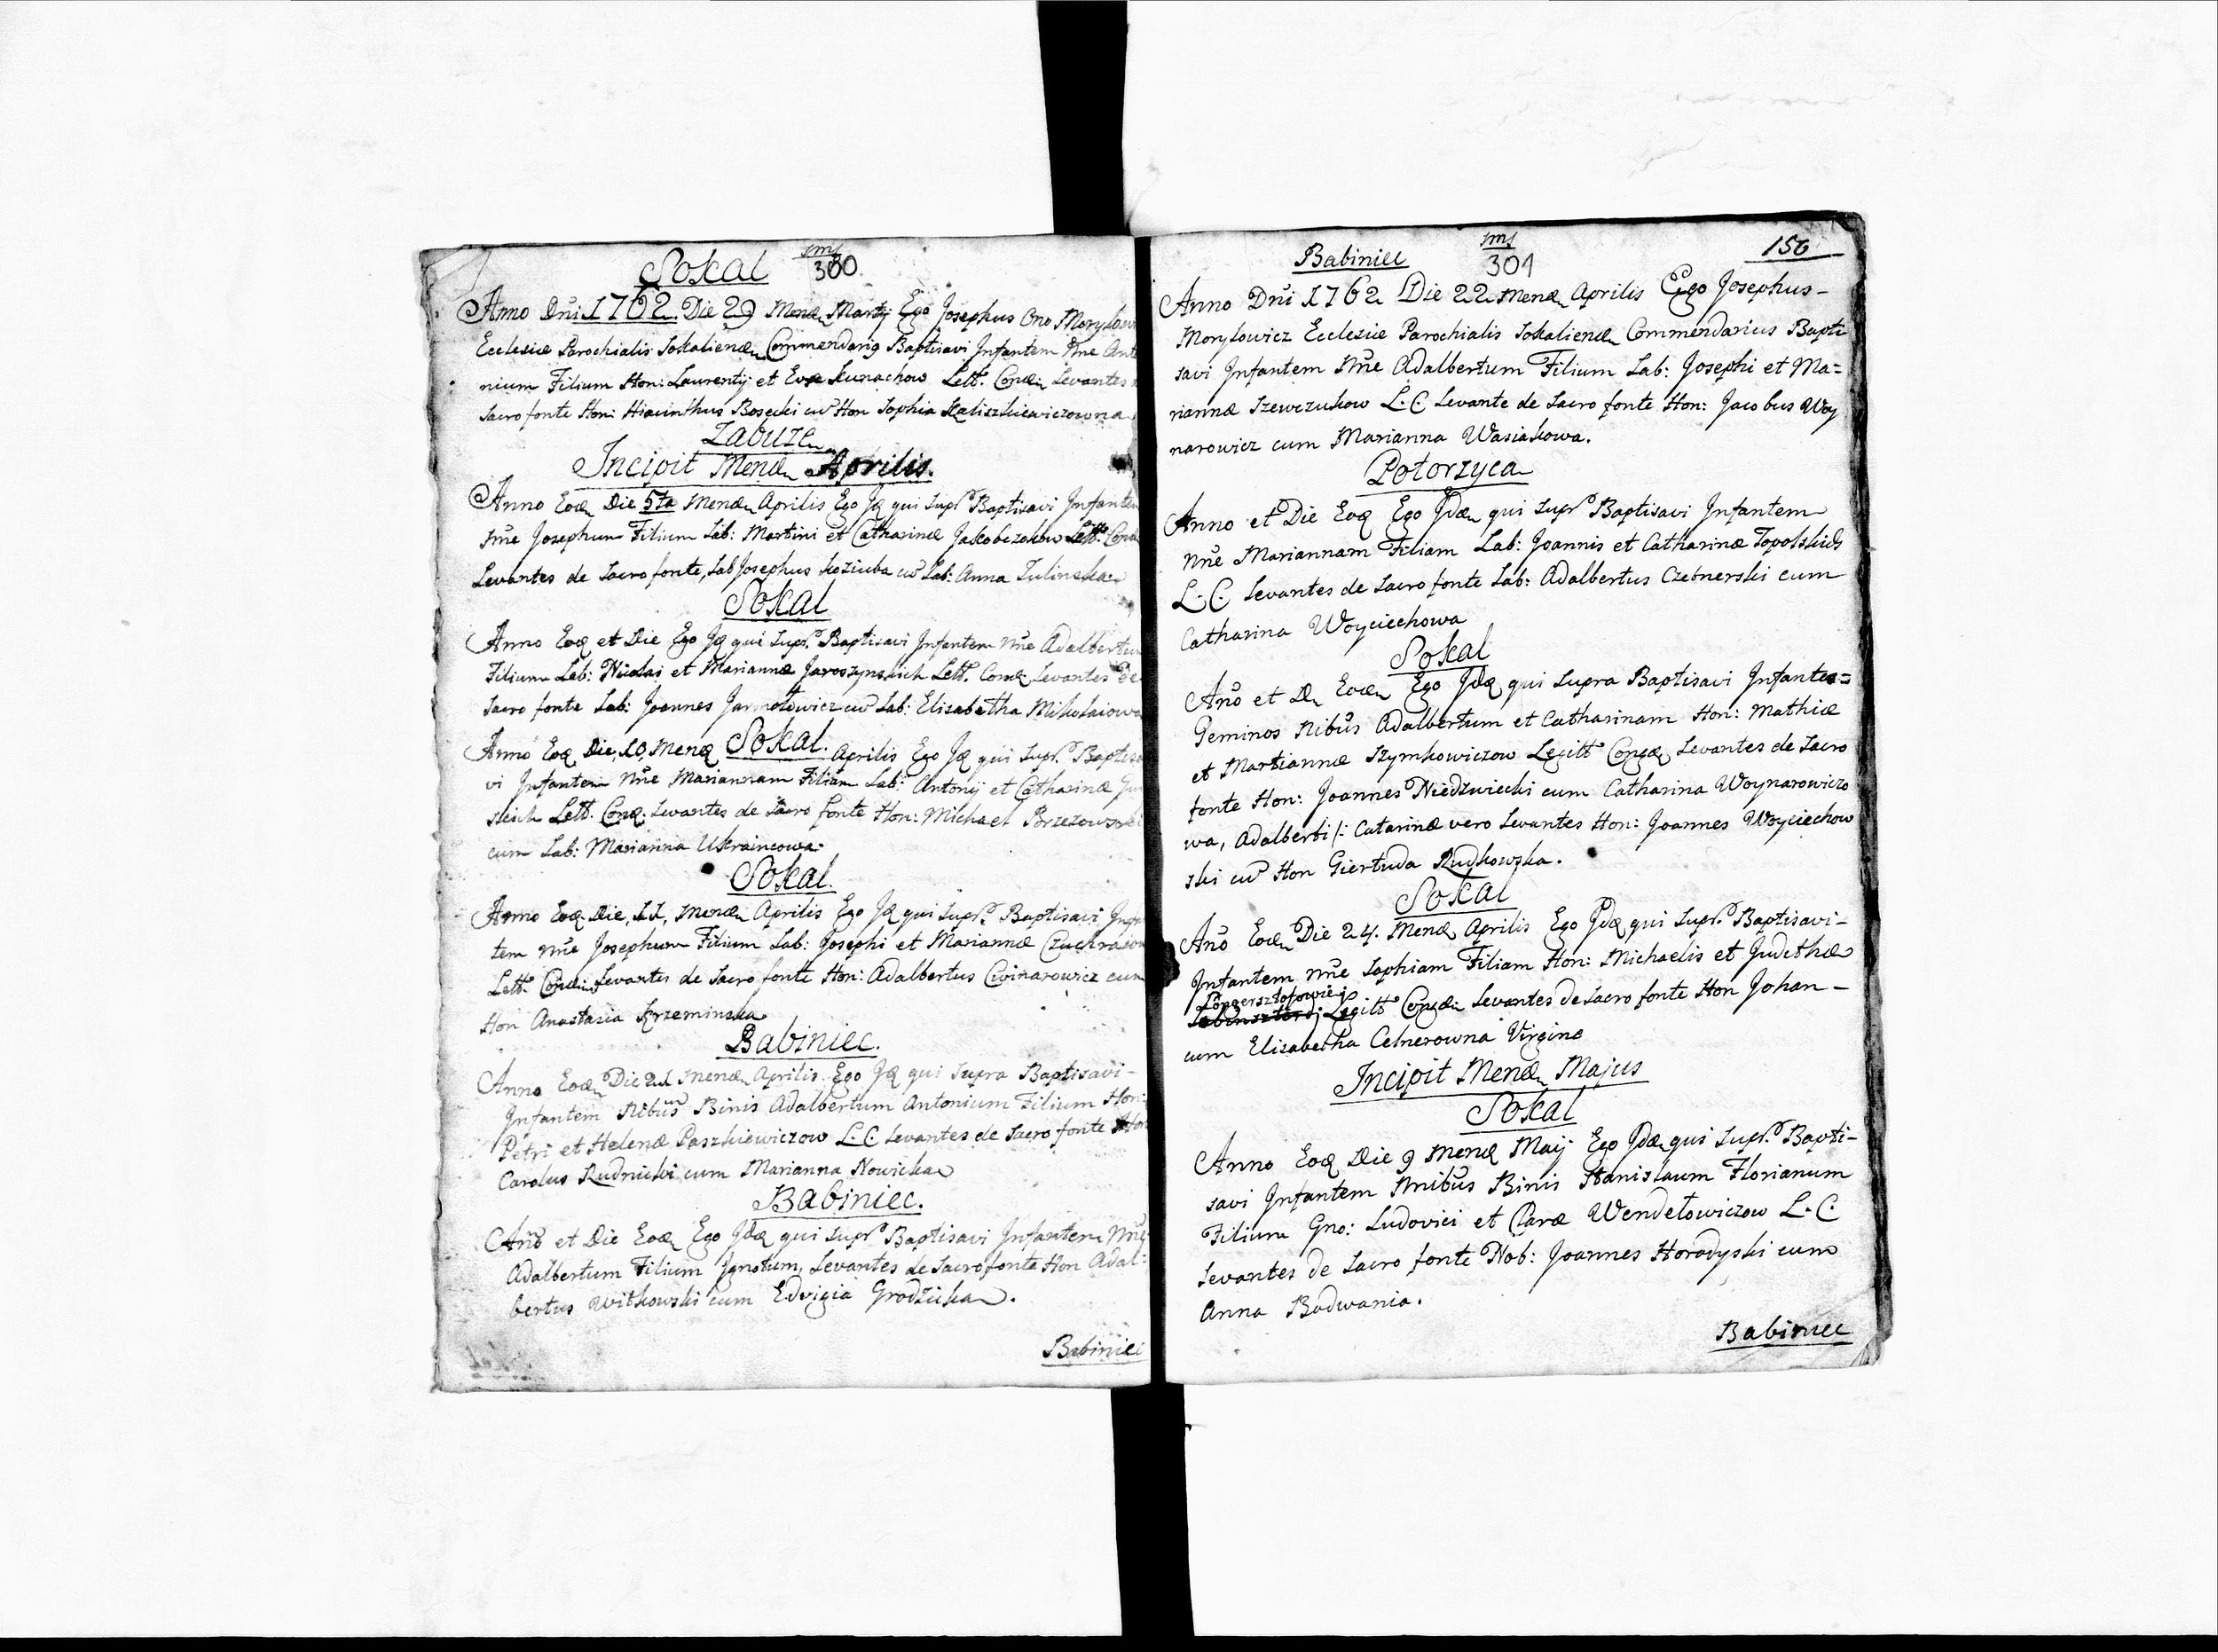 Sokal
300
Anno Dni 1762. Die 29 Mens Martij Ego Josephus Ono Morylowi
Ecclesiæ Parochialis Sokaliens Commendarig Baptisavi Infantem Nne Anto
nium Filium Hon: Laurentij et Evæ Kunachow Lett. Levantes
Sacro fonte Hon: Hiacinthus Bosecki cu Hon Sophia Kaliszkiewiczowna
Zabuze
Incipit Mens Aprilis.
Anno Eod Die 5ta Mens Aprilis Ego Id qui Supr Baptisavi Infantem
Nne Josephum Filium Lab: Martini et Catharinæ Jakobczakow Lett.
Levantes de Sacro fonte, Lab Josephus Koziuba cu Lab: Anna Zulinska
Sokal
Anno Eod et Die Ego Id qui Supr. Baptisavi Infantem Nne Adalbertum
Filium Lab: Nicolai et Mariannæ Jaroszynskich Lett. Levantes de
Sacro fonte Lab: Joannes Jarmolowicz cu Lab: Elisabetha Mikolaiowa
Sokal.
Anno Eod Die, 10, Mens Aprilis Ego Id qui Supr. Baptisa
vi Infantem Nne Mariannam Filiam Lab: Antonij et Catharinæ
skich Lett. Levantes de Sacro fonte Hon: Michael Brzezowski
cum Lab: Marianna Ukraincowa.
Sokal.
Anno Eod Die, 11, Mens Aprilis Ego Id qui Supr. Baptisavi Infan
tem Nne Josephum Filium Lab: Josephi et Mariannæ
Lett. Levantes de Sacro fonte Hon: Adalbertus Cwinarowicz cum
Hon Anastasia Krzeminska
Babiniec.
Anno Eod Die 21 Mens Aprilis Ego Id qui Supra Baptisavi-
Infantem Nibus Binis Adalbertum Antonium Filium Hon:
Petri et Helenæ Paszkiewiczow L. C. Levantes de Sacro fonte Hon
Carolus Rudnicki cum Marianna Nowicka
Babiniec.
Ano et Die Eod Ego Id qui Supr Baptisavi Infantem Nne
Adalbertum Filium Ignotum, Levantes de Sacro fonte Hon Adal:
bertus Witkowski cum Edvigia Grodzicka.
Babiniec
Babiniec
301
156
Anno Dni 1762 Die 22 Mens Aprilis Ego Josephus-
Morylowicz Ecclesiæ Parochialis Sokaliens Commendarius Bapti
savi Infantem Nne Adalbertum Filium Lab: Josephi et Ma=
riannæ Szewczukow L. C. Levante de Sacro fonte Hon: Jacobus Woy
narowicz cum Marianna Wasiakowa.
Potorzyca
Anno et Die Eod Ego Idem qui Supr Baptisavi Infantem
Nne Mariannam Filiam Lab: Joannis et Catharinæ Topolskich
L. C. Levantes de Sacro fonte Lab: Adalbertus Czetnerski cum
Catharina Woyciechowa
Sokal
Ano et D Eod Ego Id qui Supra Baptisavi Infantes=
Geminos Nibus Adalbertum et Catharinam Hon: Mathiæ
et Martiannæ Szymkowiczow Legitt Levantes de Sacro
fonte Hon: Joannes Niedzwiecki cum Catharina Woynarowiczo
wa, Adalberti /: Catarinæ vero Levantes Hon: Joannes Woyciechow
ski cu Hon Giertuda Rudkowska.
Sokal
Ano Eod Die 24. Mens Aprilis Ego Id qui Supr. Baptisavi-
Infantem Nne Sophiam Filiam Hon: Michaelis et Judethæ
Legitt Levantes de Sacro fonte Hon Johan-
cum Elisabetha Celnerowna Virgine
Incipit Mens Majus
Sokal
Anno Eod Die 9 Mens Maij Ego Id qui Supr. Bapti-
savi Infantem Nnibus Binis Stanislaum Florianum
Filium Gno: Ludovici et Claræ Wendelowiczow L. C.
Levantes de Sacro fonte Nob: Joannes Horodyski cum
Anna Bodwania.
Babiniec